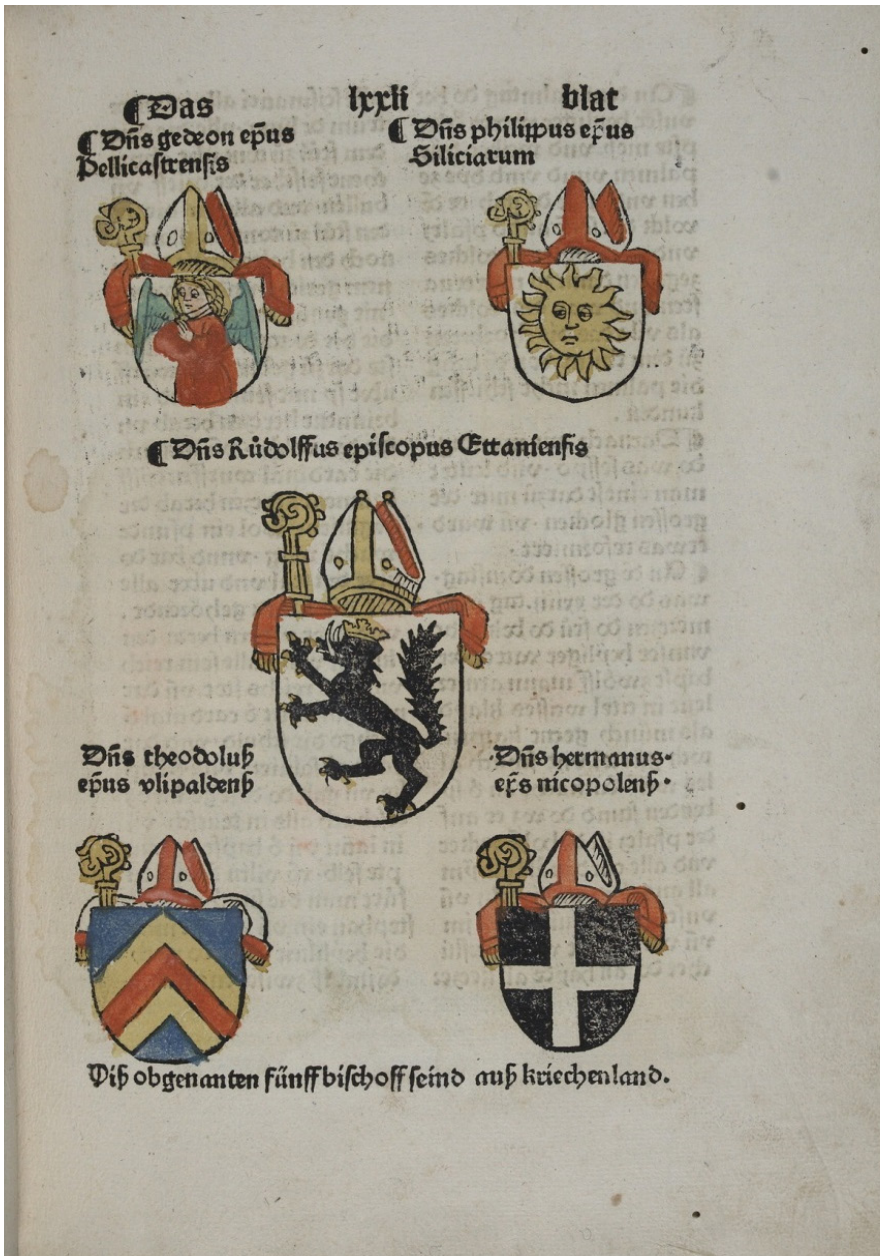 ¶Das lxxli blat
¶Dñs gedeon ep̃us
Pellicastrensis
¶Dñs philippus ep̃us
Siliciarum
¶Dñs Růdolffus episcopus Ettaniensis
Dñs theodoluß
ep̃us vlipaldenß
·Dñs hermanus·
ep̃s nicopolenß·
Diß obgenanten fünff bischoff seind auß kriechenland.